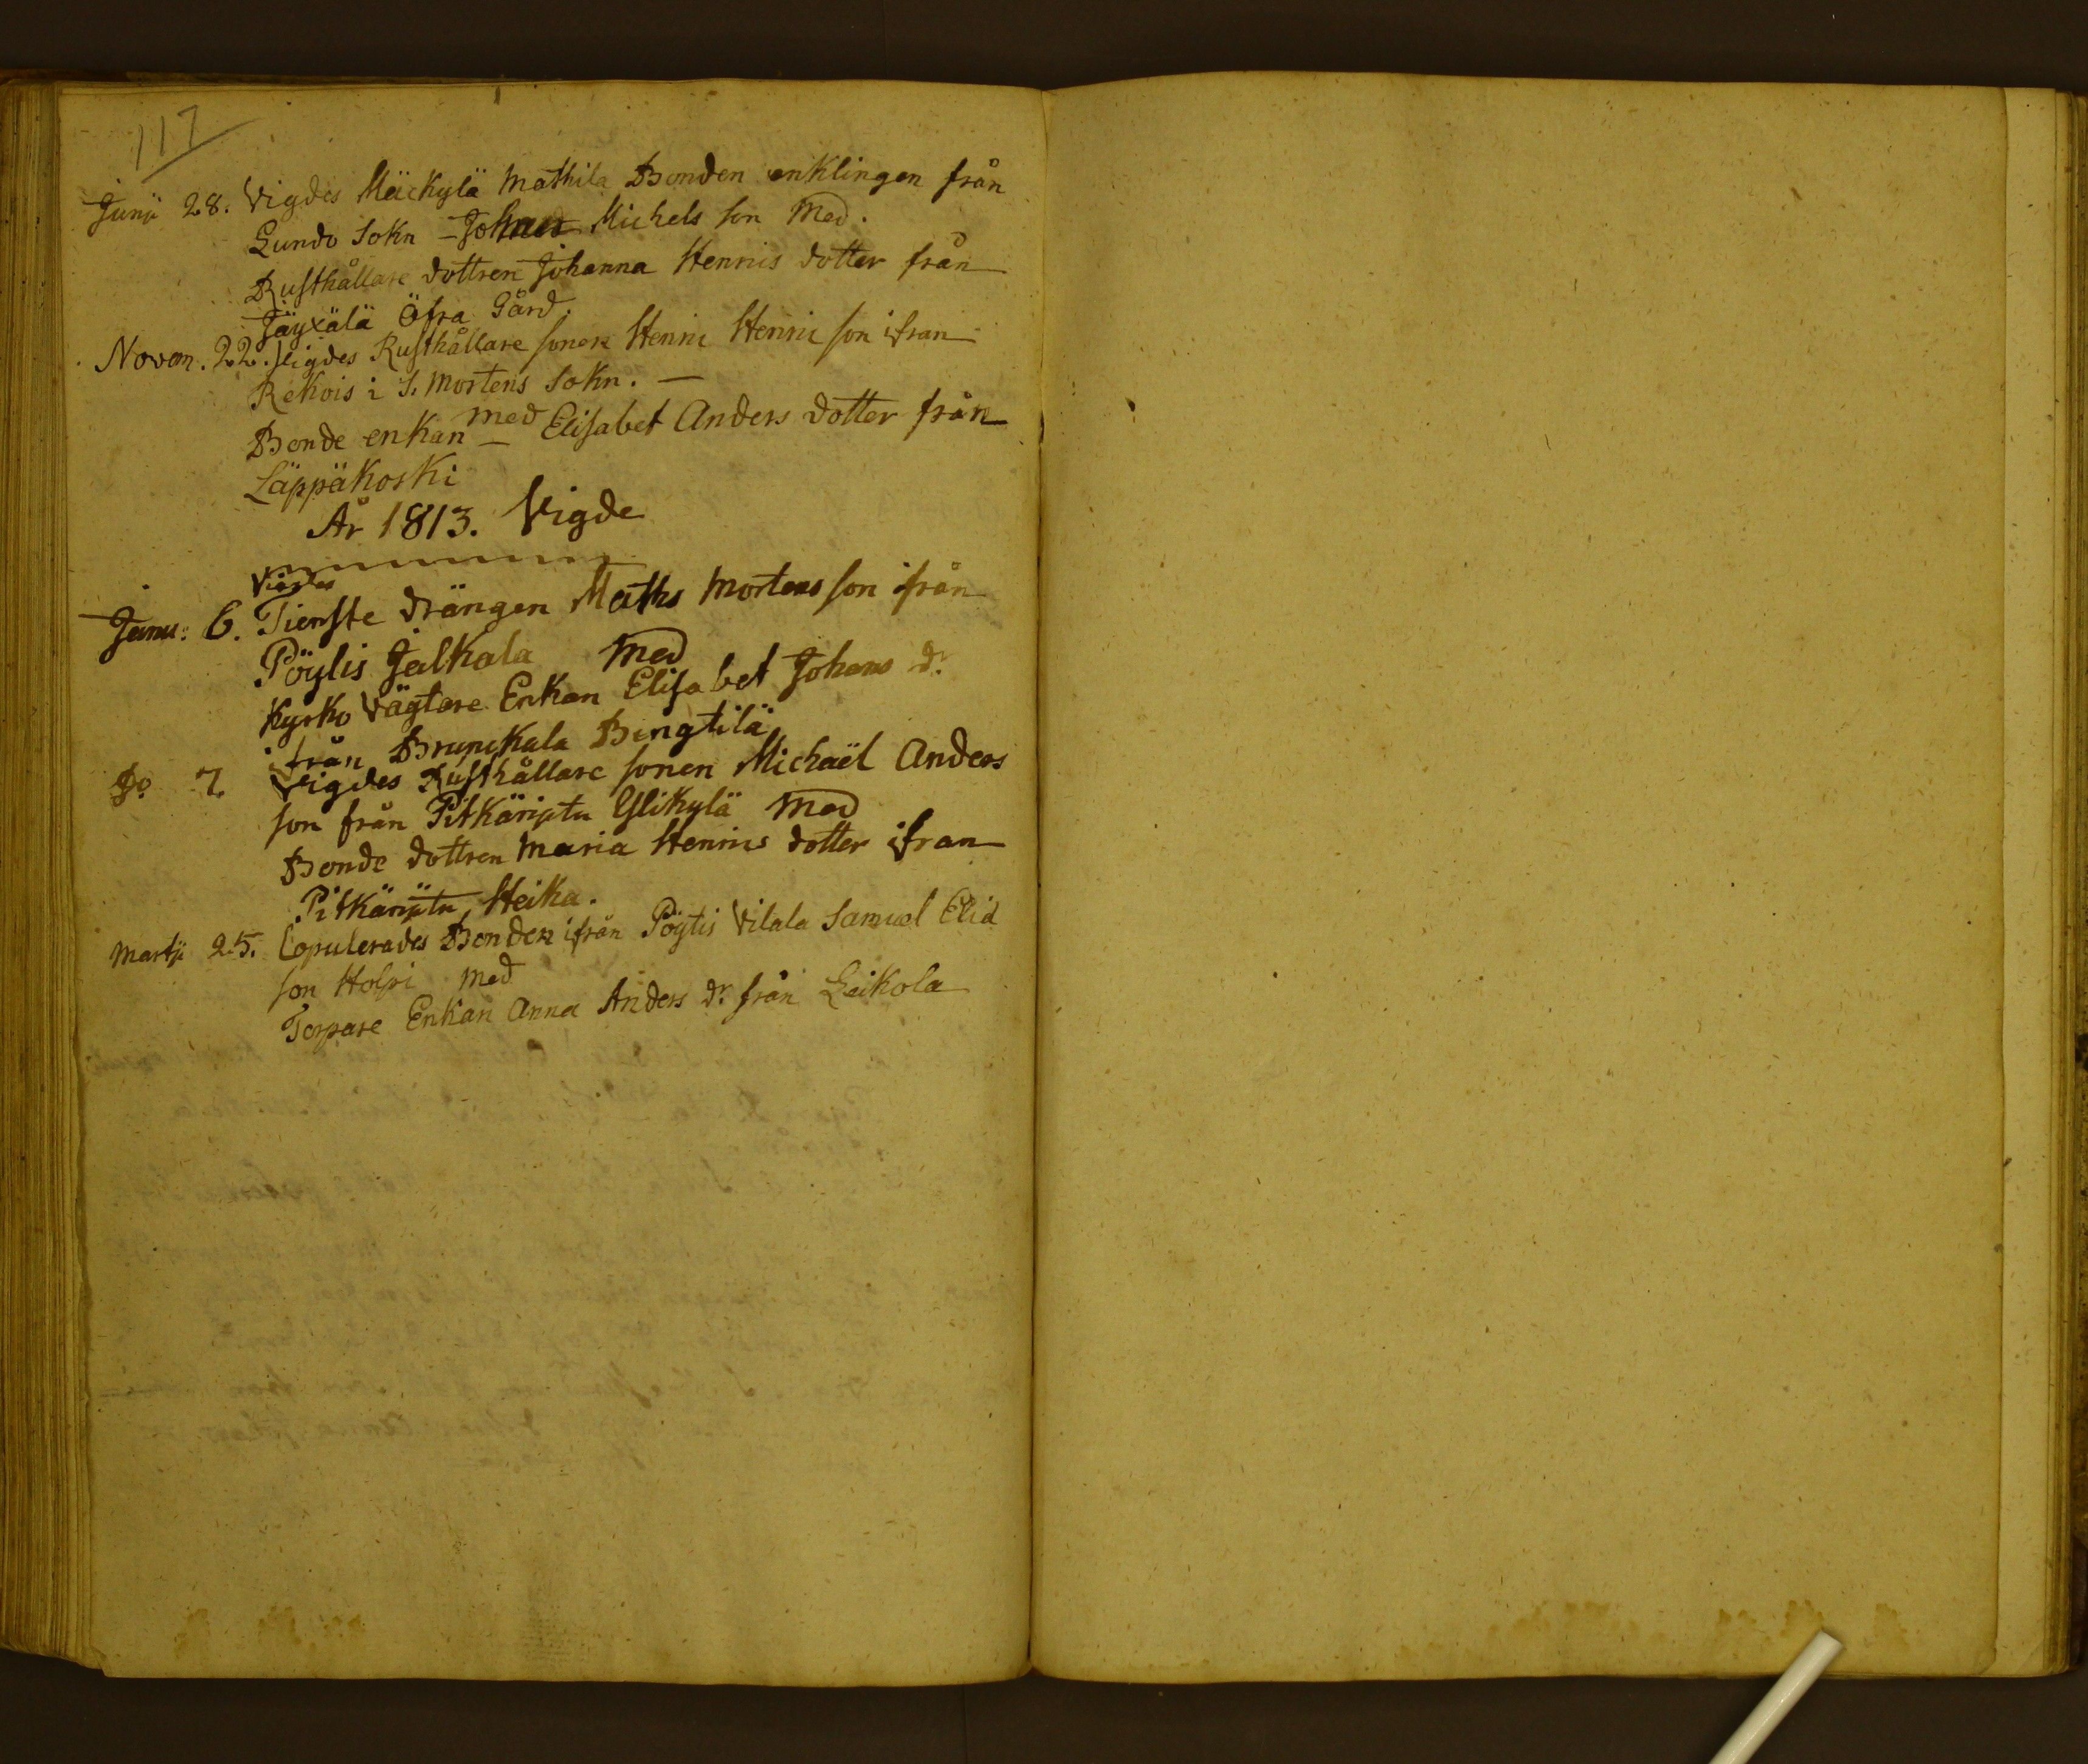 117
Junii 28. Vigdes Mäckylä Mathila Bonden enklingen från
Lundo Sokn - Johan Michels son Med.
Rusthållare dottren Johanna Hennis dotter från
Jäyxälä Öfra Gård.
Novem. 22. Vigdes Rusthållare sonen Henric Henric son ifran
Rekois i S. Mortens Sokn. —
Bonde enkan med — Elisabet Anders dotter från
Läppäkoski
År 1813. Vigde
Vigdes
Janu: 6. Tienste drängen Maths Mortens son ifrån
Pöylis Jalkala Med
Kyrko Vägtare Enkan Elisabet Johans dr.
ifrån Brunckala Bengtilä
Do 7. Vigdes Rusthållare sonen Michaël Anders
son från Pitkärijtu Ylikylä Med
Bonde dottren Maria Hennis dotter ifran
Pitkärijtu, Heika.
Martii 25. Copulerades Bonden ifrån Pöytis Vilala Samuel Elia
son Holpi Med
Torpare Enkan Anna Anders dr. från Leikola